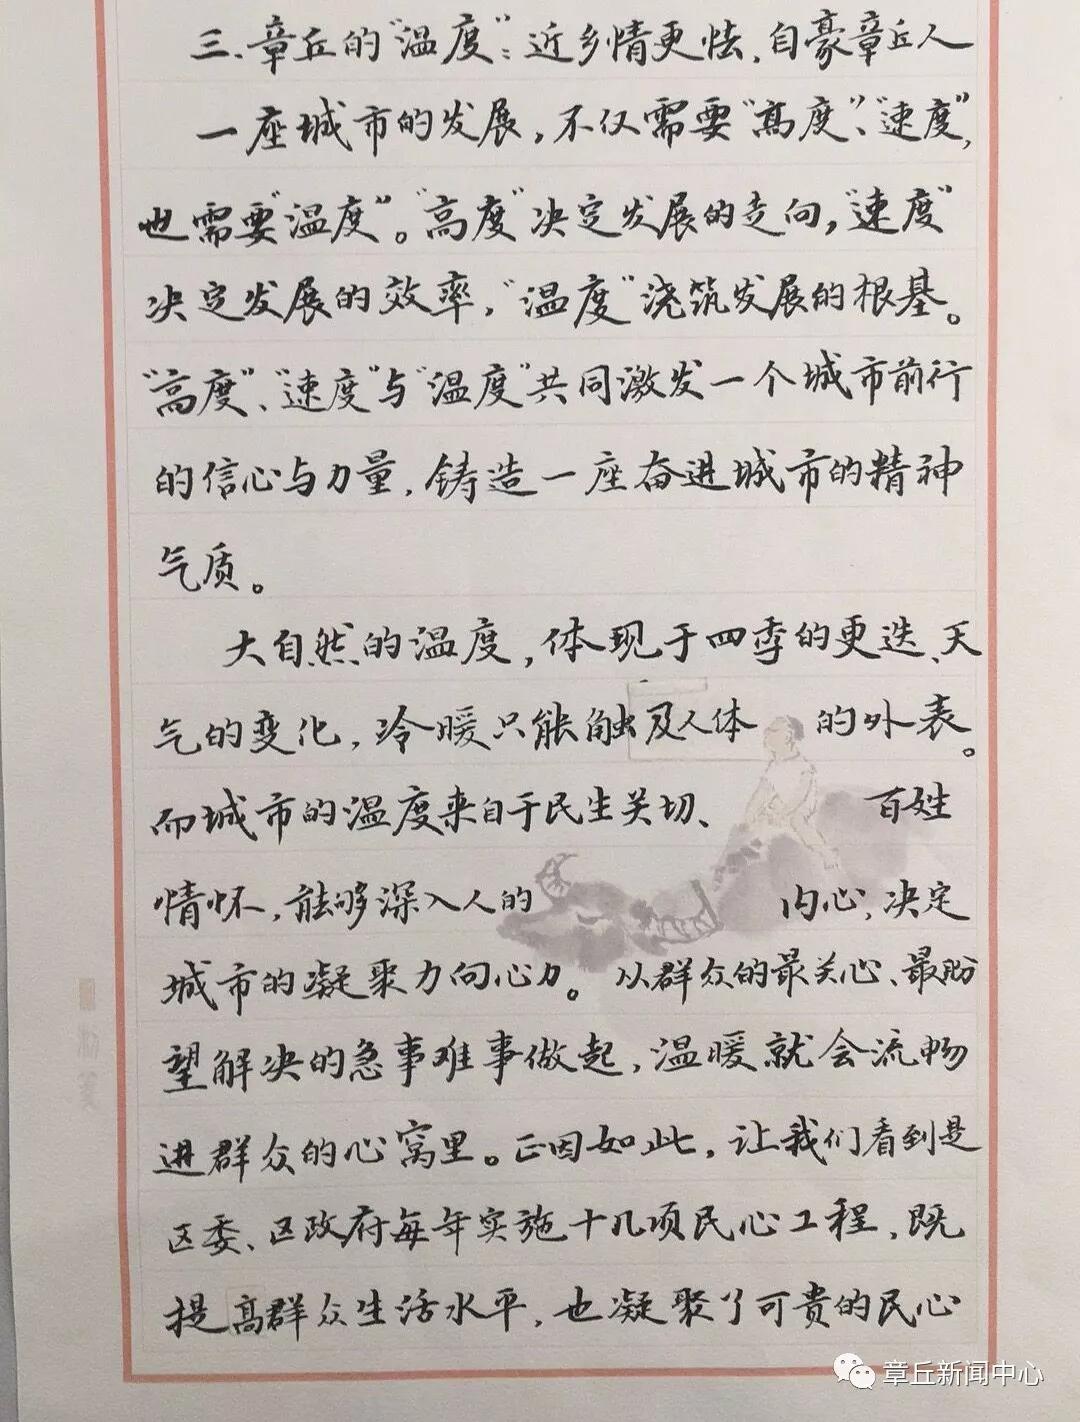 三、章丘的“温度”：近乡情更怯，自豪章丘人
一座城市的发展，不仅需要“高度”、“速度”，
也需要“温度”。“高度”决定发展的走向，“速度”
决定发展的效率，“温度”浇筑发展的根基。
“高度”、“速度”与“温度”共同激发一个城市前行
的信心与力量，铸造一座奋进城市的精神
气质。
大自然的温度，体现于四季的更迭、天
气的变化，冷暖只能触及人体 的外表。
而城市的温度来自于民生关切、 百姓
情怀，能够深入人的 内心，决定
城市的凝聚力向心力。从群众的最关心、最盼
望解决的急事难事做起，温暖就会流畅
进群众的心窝里。正因如此，让我们看到是
区委、区政府每年实施十几项民心工程，既
提高群众生活水平，也凝聚了可贵的民心
章丘新闻中心